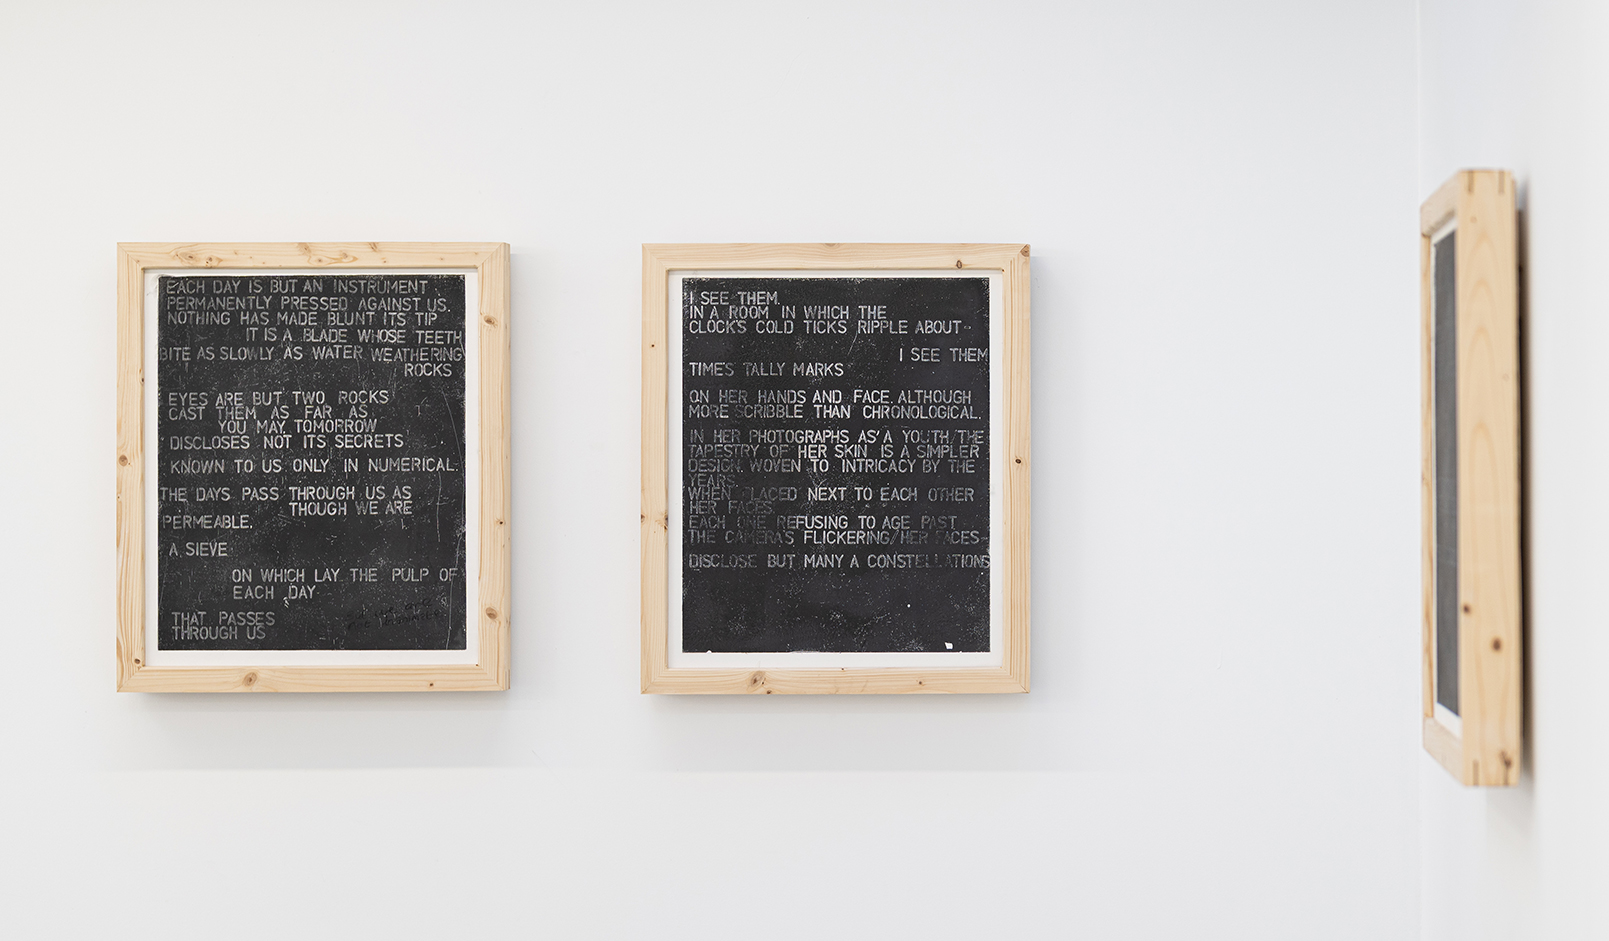 EACH DAY IS BUT AN INSTRUMENT
PERMANENTLY PRESSED AGAINST US.
NOTHING HAS MADE BLUNT ITS TIP
IT IS A BLADE WHOSE TEETH
BITE AS SLOWLY AS WATER WEATHERING
ROCKS
EYES ARE BUT TWO ROCKS
CAST THEM AS FAR AS
YOU MAY. TOMORROW
DISCLOSES NOT ITS SECRETS
KNOWN TO US ONLY IN NUMERICAL.
THE DAYS PASS THROUGH US AS
THOUGH WE ARE
PERMEABLE.
A SIEVE
ON WHICH LAY THE PULP OF
EACH DAY
THAT PASSES
THROUGH US
I SEE THEM.
IN A ROOM IN WHICH THE
CLOCK'S COLD TICKS RIPPLE ABOUT-
I SEE THEM
TIME'S TALLY MARKS
ON HER HANDS AND FACE. ALTHOUGH
MORE SCRIBBLE THAN CHRONOLOGICAL.
IN HER PHOTOGRAPHS AS A YOUTH/THE
TAPESTRY OF HER SKIN IS A SIMPLER
DESIGN. WOVEN TO INTRICACY BY THE
YEARS.
WHEN PLACED NEXT TO EACH OTHER
HER FACES
EACH ONE REFUSING TO AGE PAST
THE CAMERA'S FLICKERING/HER FACES-
DISCLOSE BUT MANY A CONSTELLATIONS